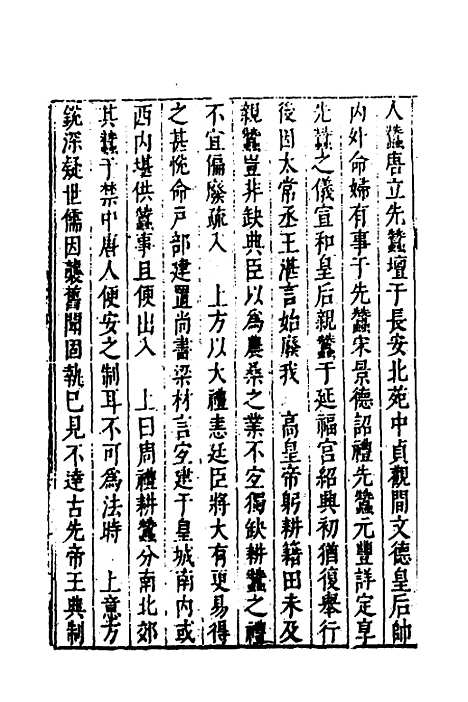 人蠶唐立先蠶壇于長安北苑中貞觀間文德皇后帥
內外命婦有事于先蠶宋景德詔禮先蠶元豐詳定皇
先蠶之儀宣和皇后親蠶于延福宮紹興初猶復舉行
後因太常丞王湛言始廢我　高皇帝躬耕籍田未及
親蠶豈非缺典臣以爲農桑之業不宜獨缺耕蠶之禮
不宜偏廢疏入　上方以大禮恚廷臣將大有更易得
之甚恱命戶部建置尚書梁材言宜建于皇城南內或
西內堪供蠶事且便出入　上曰周禮耕蠶分南北郊
其蠶于禁中唐人便安之制耳不可爲法時　上意方
銳深疑世儒因襲舊聞固執已見不達古先帝王典制